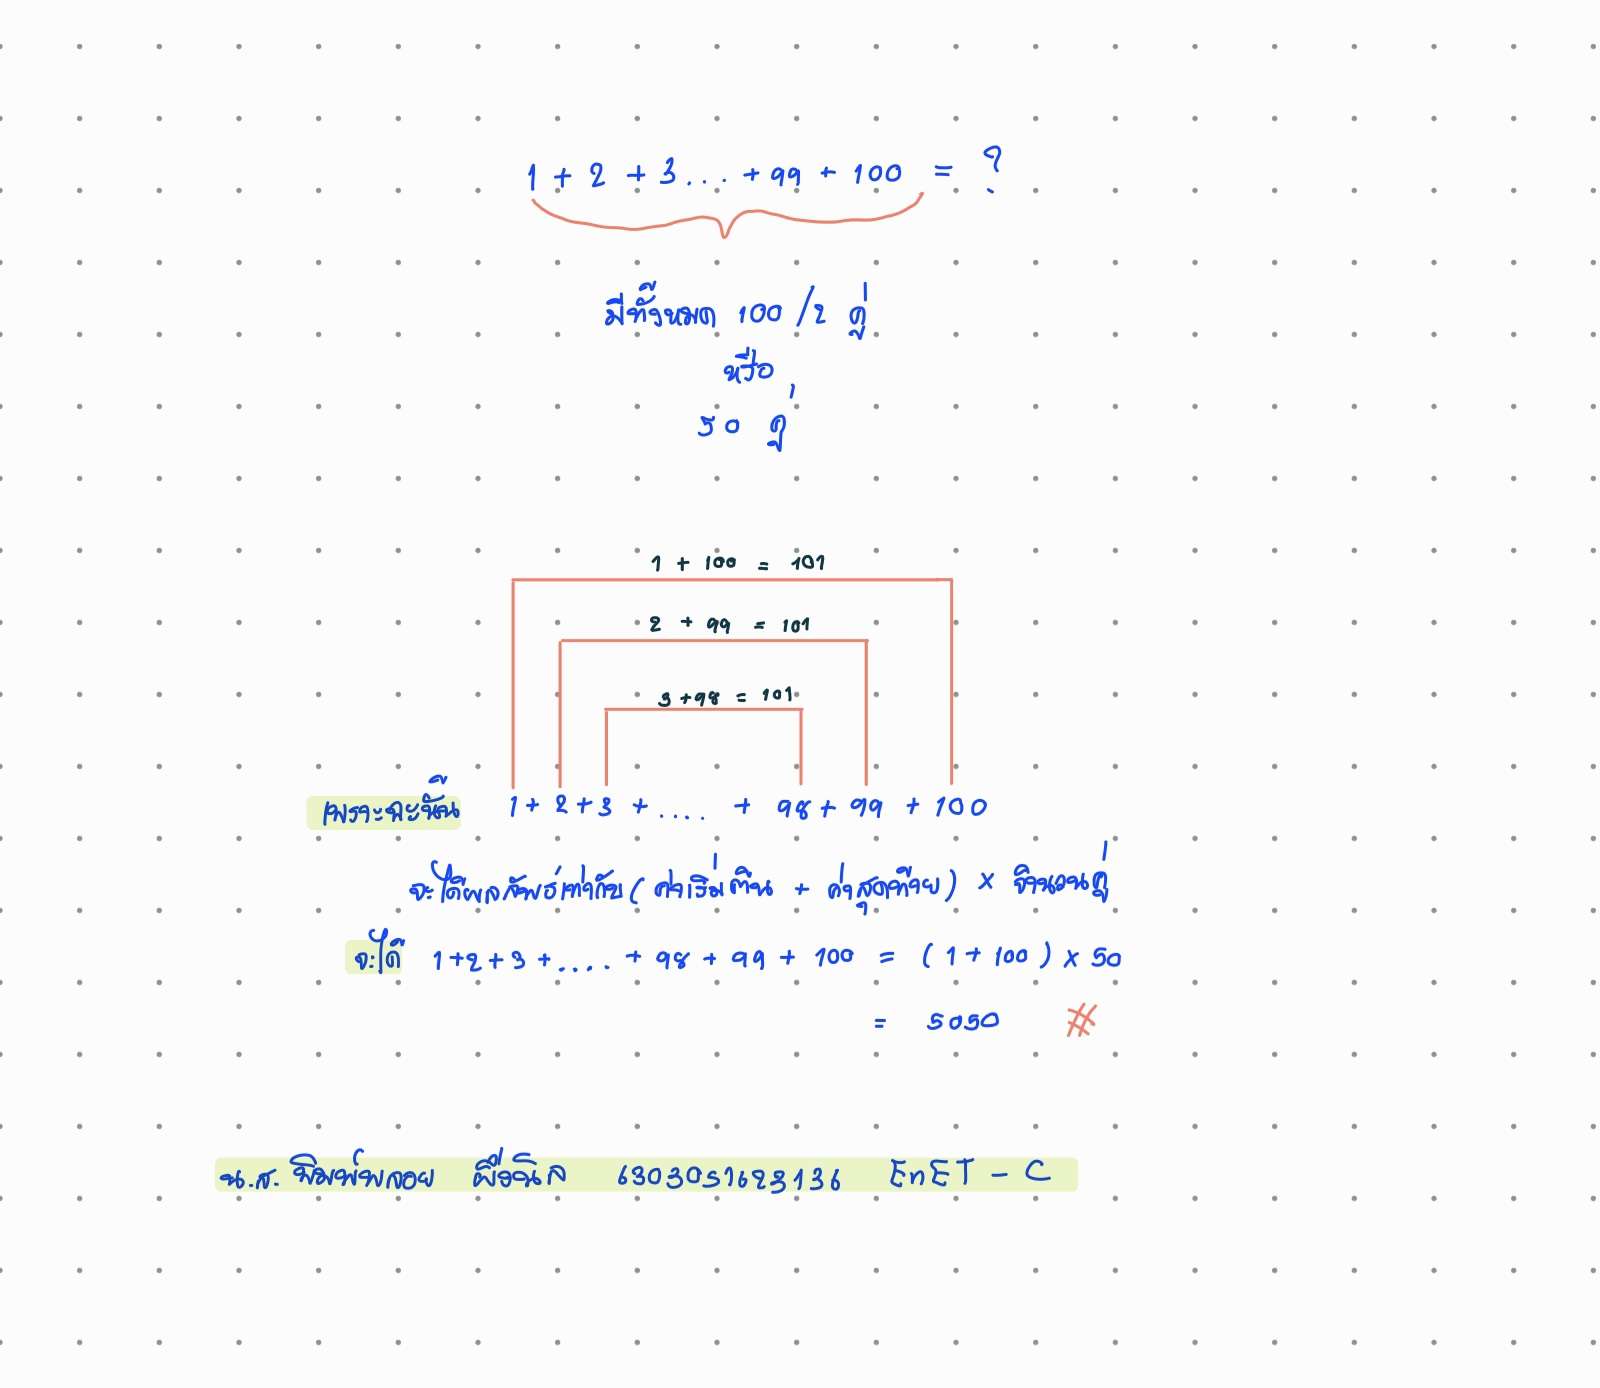 1 + 2 + 3... + 99 + 100 = ?
มีทั้งหมด 100/2 คู่
หรือ
50 คู่
1 + 100 = 101
2 + 99 = 101
3 + 98 = 101
เพราะฉะนั้น 1 + 2 + 3 + .... + 98 + 99 + 100
จะได้ผลลัพธ์เท่ากับ (ค่าเริ่มต้น + ค่าสุดท้าย) × จำนวนคู่
จะได้ 1 + 2 + 3 + .... + 98 + 99 + 100 = (1 + 100) × 50
= 5050 #
น.ส. พิมพ์พลอย 6303051623136 EnET - C